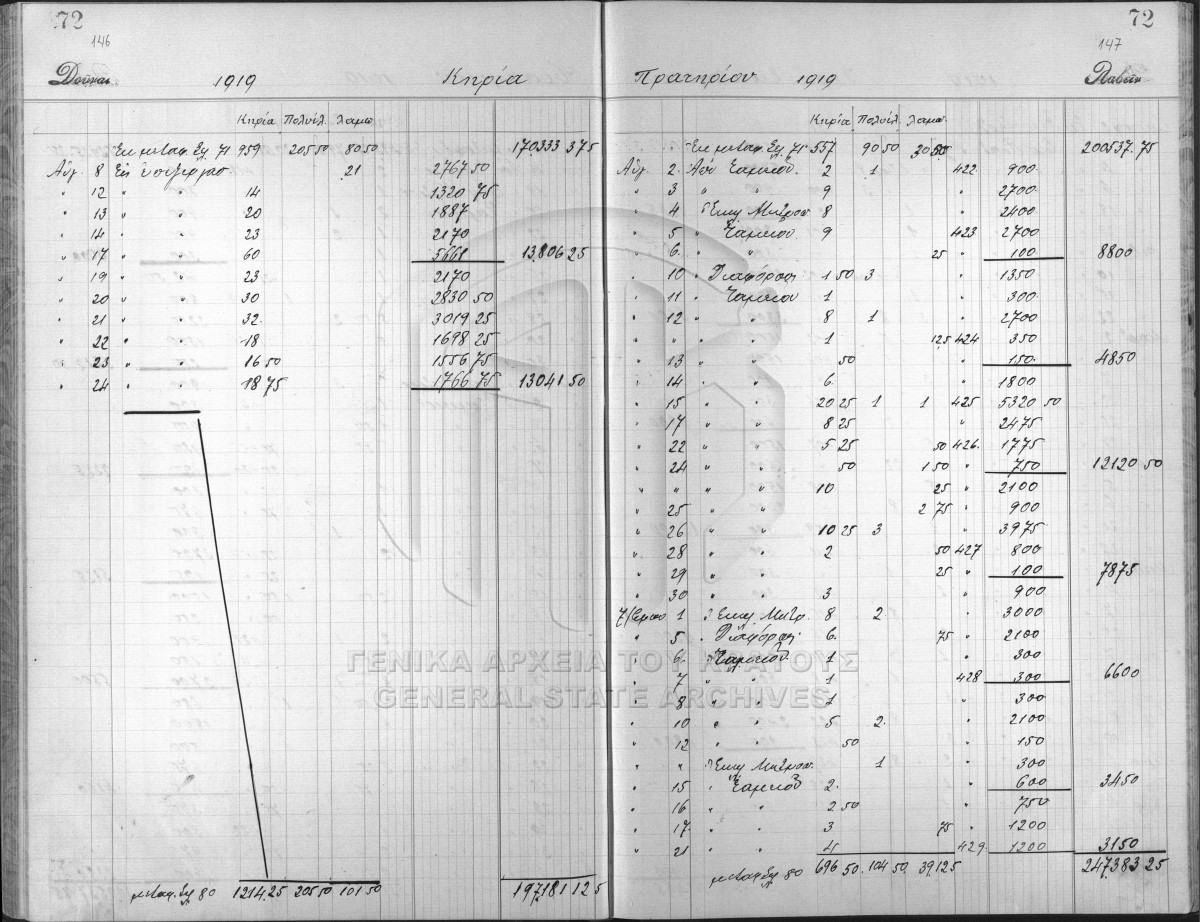 72
146
Δοῦναι 1919 Κηρία
Κηρία Πολυέλ. Λαμπ.
Ἐκ μεταφ. Σελ 71 959 205 50 80 50 170333 375
Αὔγ. 8 Εἰς 21 2767 50
" 12 " " 14 1320 75
" 13 " " 20 1887
" 14 " " 23 2170
" 17 " " 60 5661 13.806 25
" 19 " " 23 2170
" 20 " " 30 2830 50
" 21 " " 32 3019 25
" 22 " " 18 1698 25
" 23 " " 16 50 1556 75
" 24 " " 18 75 1766 75 13041 50
μεταφ. Σελ 80 1214.25 205 50 101 50 197.181 125
72
147
Πρατηρίου 1919 Λαβεῖν
Κηρία Πολυέλ. Λαμπ.
Ἐκ μεταφ. Σελ 71 557 90 50 30 200537.75
Αὔγ. 2 Ἀπὸ Ταμείου 2 1 422 900
" 3 " " 9 " 2700
" 4 " Ἐκκλ Μητροπ 8 " 2400
" 5 " Ταμείου 9 423 2700
" 6 " " 25 " 100 8800
" 10 " Διαφόρων 1 50 3 " 1350
" 11 " Ταμείου 1 " 300
" 12 " " 8 1 " 2700
" " " " 1 125 424 350
" 13 " " 50 " 150 4850
" 14 " " 6 " 1800
" 15 " " 20 25 1 1 425 5320 50
" 17 " " 8 25 " 2475
" 22 " " 5 25 50 426 1775
" 24 " " 50 1 50 " 750 12120 50
" " " " 10 25 " 2100
" 25 " " 2 75 " 900
" 26 " " 10 25 3 " 3975
" 28 " " 2 50 427 800
" 29 " " 25 " 100 7875
" 30 " " 3 " 900
7/βρίου 1 " Ἐκκλ Μητρ. 8 2 " 3000
" 5 " Διαφόρων 6 75 " 2100
" 6 " Ταμείου 1 " 300
" 7 " " 1 428 300 6600
" 8 " " 1 " 300
" 10 " " 5 2 " 2100
" 12 " " 50 " 150
" " " Ἐκκλ Μητροπ. 1 " 300
" 15 " Ταμείου 2 " 600 3450
" 16 " " 2 50 " 750
" 17 " " 3 75 " 1200
" 21 " " 4 429 1200 3150
μεταφ. Σελ 80 696 50 104 50 39125 247.383 25
ΓΕΝΙΚΑ ΑΡΧΕΙΑ ΤΟΥ ΚΡΑΤΟΥΣ
GENERAL STATE ARCHIVES